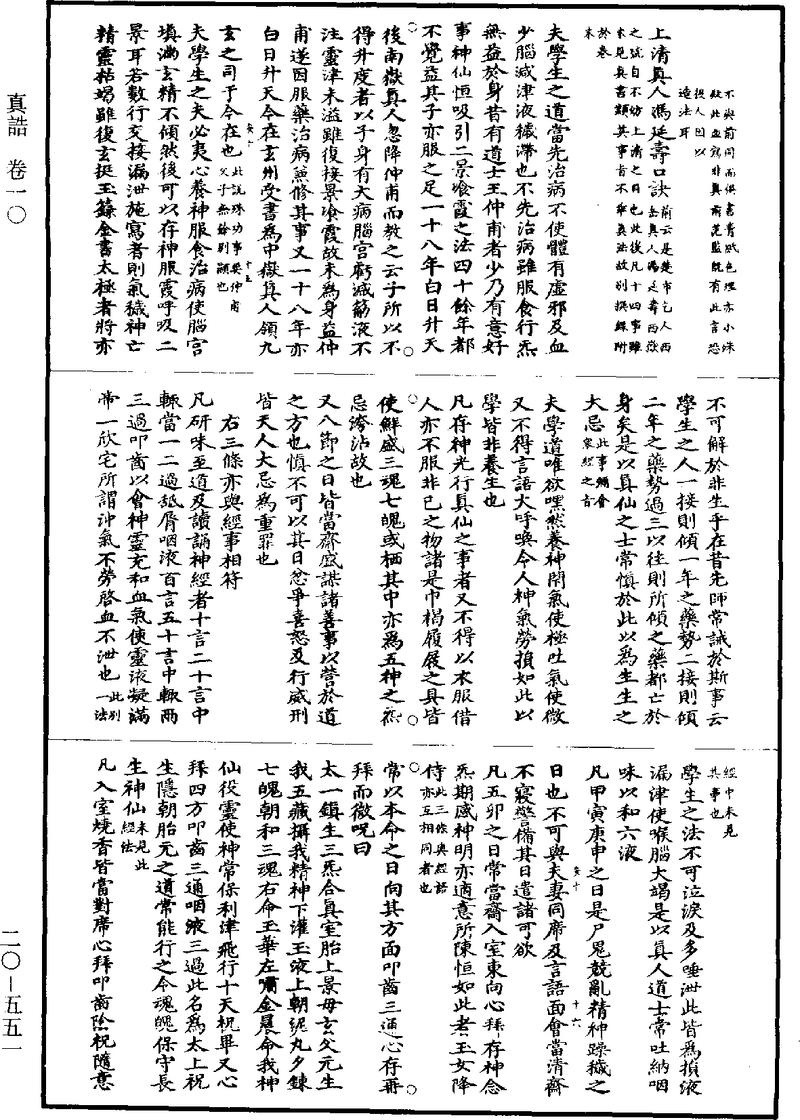 不與前同而俱書青紙色理亦小殊
疑此並寫非真前范監既有此言恐
後人因以
造法耳
上清真人馮延壽口訣前云是楚市乞人西岳真人馮延壽西嶽
之號自不妨上清之目也此後凡十四事雖
未見真書類其事旨不乖真法故別撰錄附
於卷
末
夫學生之道當先治病不使體有虛邪及血
少腦減津液穢滯也不先治病雖服食行炁
無益於身昔有道士王仲甫者少乃有意好
事神仙恒吸引二景飧霞之法四十餘年都
不覺益其子亦服之足一十八年白日升天
後南嶽真人忽降仲甫而教之云子所以不
得升度者以子身有大病腦宮虧減筋液不
注靈津未溢雖復接景飧霞故未為身益仲
甫遂因服藥治病兼修其事又一十八年亦
白日升天今在玄州受書為中嶽真人領九
玄之司于今在也此說殊功事與仲甫父子無餘別顯也
夫學生之夫必夷心養神服食治病使腦宮
填滿玄精不傾然後可以存神服霞呼吸二
景耳若數行交接漏泄施寫者則氣穢神亡
精靈枯竭雖復玄挺玉籙金書太極者將亦
不可解於非生乎在昔先師常誡於斯事云
學生之人一接則傾一年之藥勢二接則傾
二年之藥勢過三以往則所傾之藥都亡於
身矣是以真仙之士常慎於此以為生生之
大忌此事彌會眾經之旨
夫學道唯欲嘿然養神閉氣使極吐氣使微
又不得言語大呼喚令人神氣勞損如此以
學皆非養生也
凡存神光行真仙之事者又不得以衣服借
人亦不服非己之物諸是巾褐履屐之具皆
使鮮盛三魂七魄或栖其中亦為五神之炁
忌洿沾故也
又八節之日皆當齋盛謀諸善事以營於道
之方也慎不可以其日忿爭喜怒及行威刑
皆天人大忌為重罪也
右三條亦與經事相符
凡研味至道及讀誦神經者十言二十言中
輒當一二過舐脣咽液百言五十言中輒兩
三過叩齒以會神靈充和血氣使靈液凝滿
帝一欣宅所謂沖氣不勞啓血不泄也此別一法
經中未見
其事也
學生之法不可泣淚及多唾泄此皆為損液
漏津使喉腦大竭是以真人道士常吐納咽
味以和六液
凡甲寅庚申之日是尸鬼競亂精神躁穢之
日也不可與夫妻同席及言語面會當清齋
不寢警備其日遣諸可欲
凡五卯之日常當齋入室東向心拜存神念
炁期感神明亦適意所陳恒如此者玉女降
侍此三條與經語亦互相同者也
常以本命之日向其方面叩齒三通心存再
拜而微呪曰
太一鎮生三炁合真室胎上景母玄父元生
我五藏攝我精神下灌玉液上朝泥丸夕鍊
七魄朝和三魂右命玉華左嘯金晨命我神
仙役靈使神常保利津飛行十天祝畢又心
拜四方叩齒三通咽液三過此名為太上祝
生隱朝胎元之道常能行之令魂魄保守長
生神仙未見此經法
凡入室燒香皆當對席心拜叩齒陰祝隨意
真誥 卷一〇
二〇－五五一